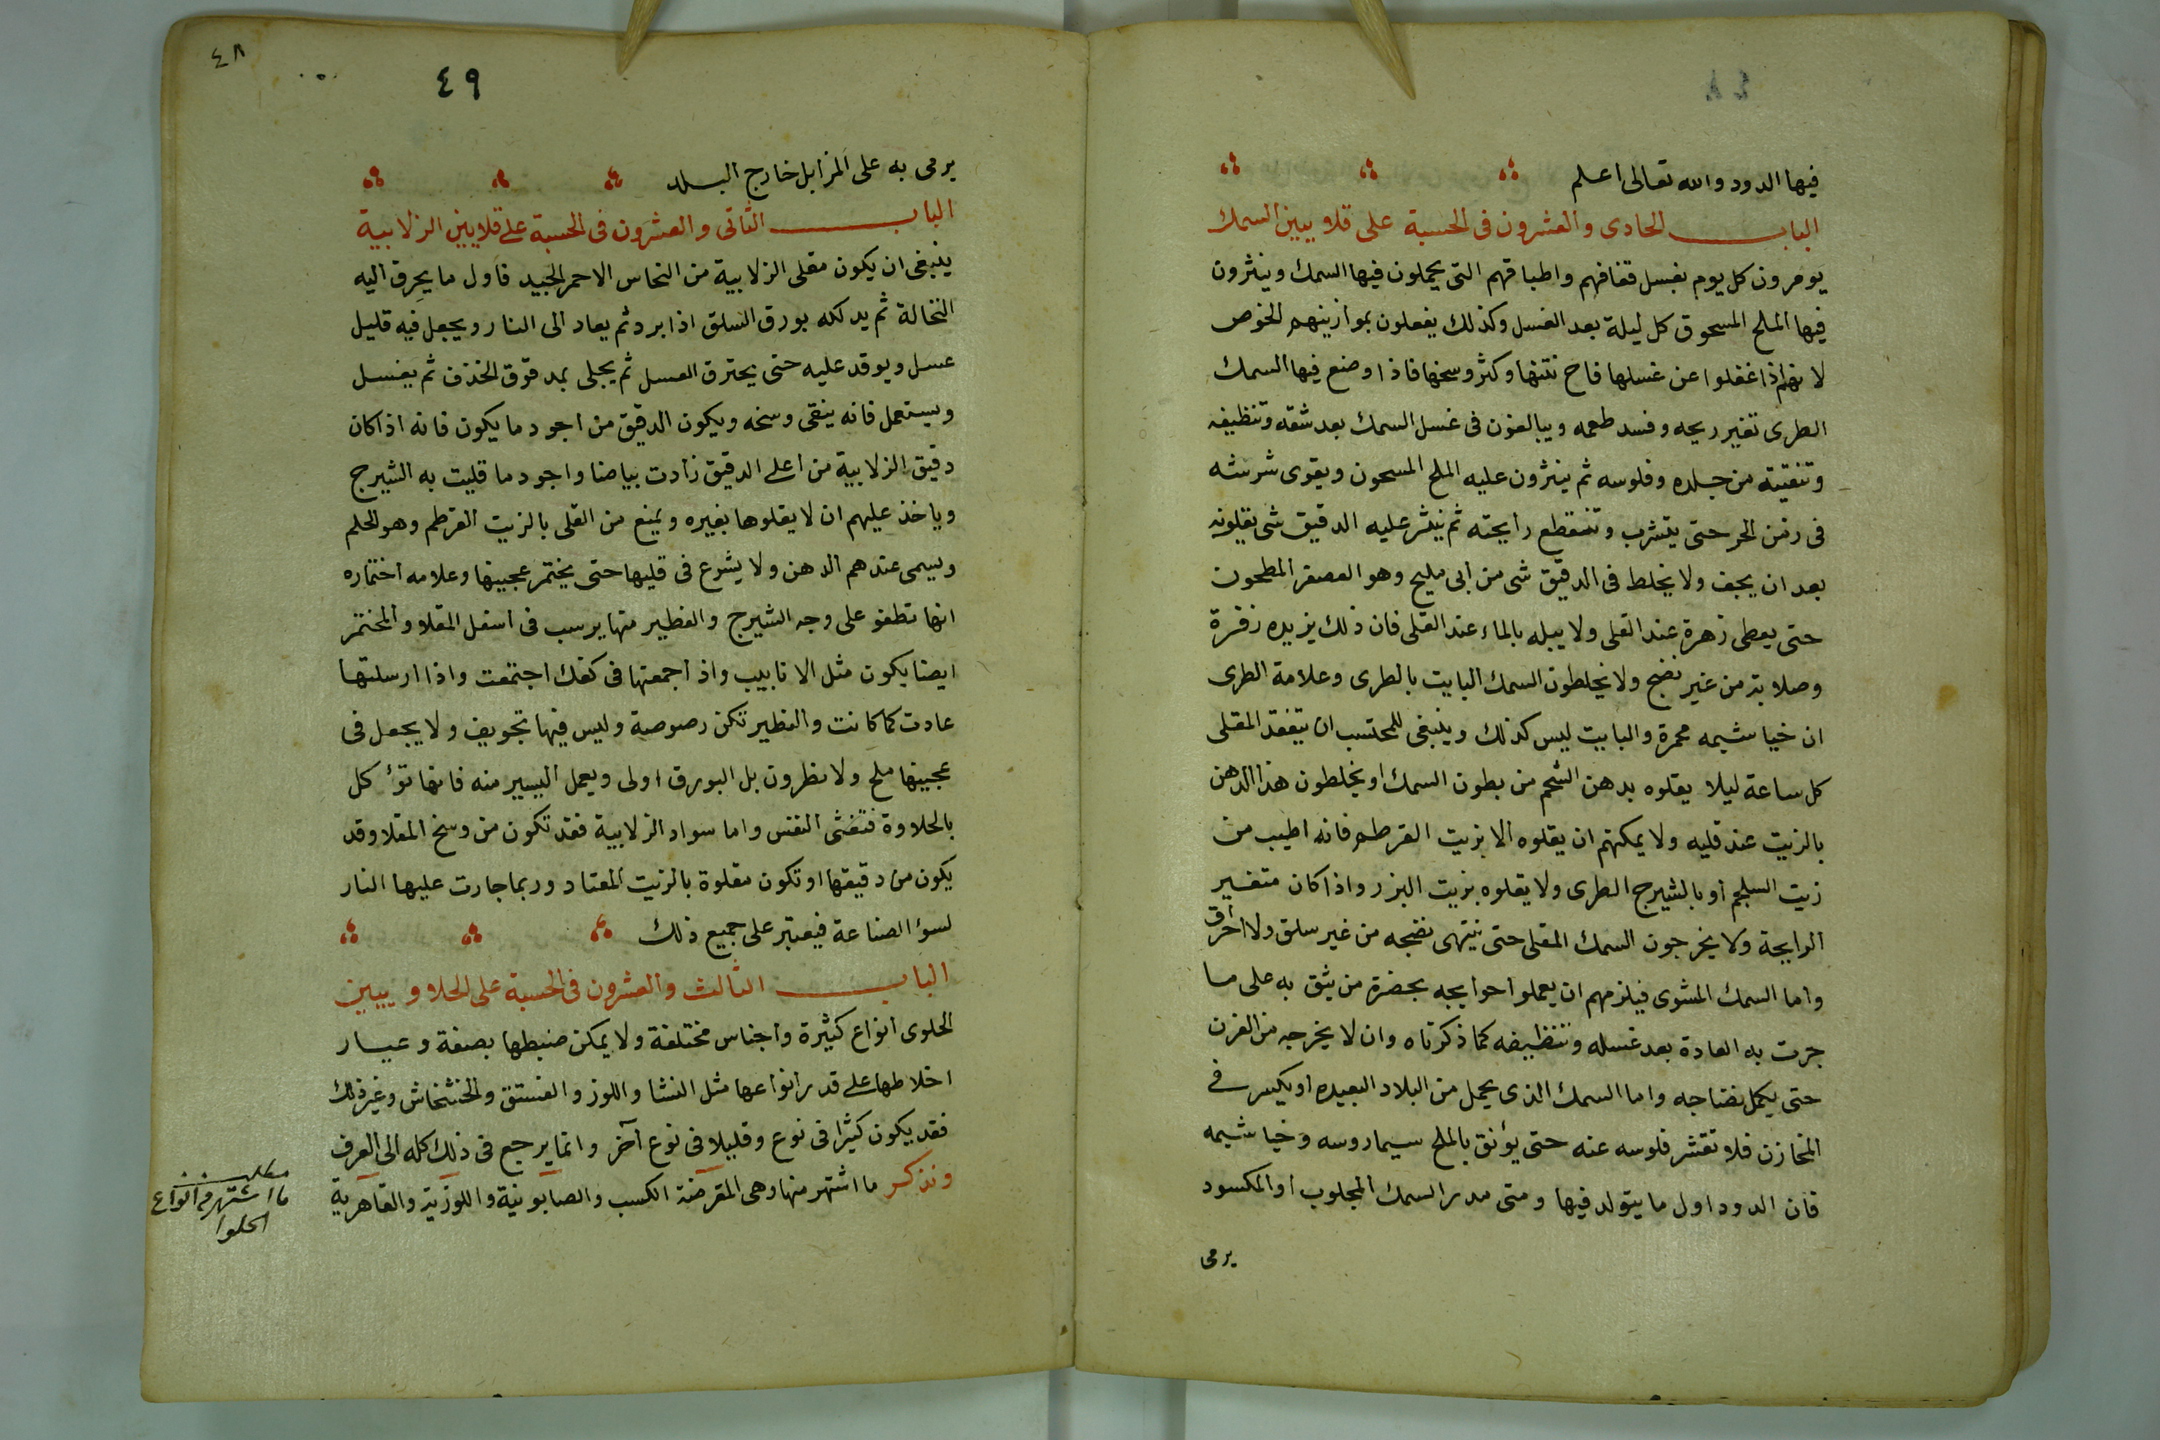 فيها الدود والله تعالى اعلم
الباب الحادى والعشرون فى الحسبة على قلايين السمك
يومرون كل يوم بغسل قفافهم واطباقهم التى يحملون فيها السمك وينثرون
فيها الملح المسحوق كل ليلة بعد الغسل وكذلك يفعلون بموازينهم الخوص
لانهم اذا غفلوا عن غسلها فاح نتنها وكثر وسخها فاذا وضع فيها السمك
الطرى تغير ريحه وفسد طعمه ويبالغون فى غسل السمك بعد شقه وتنظيفه
وتنقيته من جلده وفلوسه ثم ينثرون عليه الملح المسحون ويقوى شرشه
فى زمن الحر حتى يتشرب وتنقطع رايحته ثم ينثر عليه الدقيق شى يقلونه
بعد ان يجف ولا يخلط فى الدقيق شى من ابى مليح وهو العصفر المطحون
حتى يعطى زهرة عند القلى ولا يبله بالماء عند القلى فان ذلك يزيده زفرة
وصلابة من غير نضج ولا يخلطون السمك البايت بالطرى وعلامة الطرى
ان خياشيمه محمرة والبايت ليس كذلك وينبغى للمحتسب ان يتفقد المقلى
كل ساعة ليلا يقلوه بدهن الشحم من بطون السمك او يخلطون هذا الدهن
بالزيت عند قليه ولا يمكنهم ان يقلوه الا بزيت القرطم فانه اطيب من
زيت السلجم او بالشيرج الطرى ولا يقلوه بزيت البزر واذا كان متغير
الرايحة ولا يخرجون السمك المقلى حتى ينتهى نضجه من غير سلق ولا احراق
واما السمك المشوى فيلزمهم ان يعملوا حوايجه بحضرة من يثق به على ما
جرت به العادة بعد غسله وتنظيفه كما ذكرناه وان لا يخرجه من الفرن
حتى يكمل نضاجه واما السمك الذى يحمل من البلاد البعيده او يكسر فى
المخازن فلا تقشر فلوسه عنه حتى يؤنق بالملح سيما روسه وخياشيمه
فان الدود اول ما يتولد فيها ومتى مدر السمك المجلوب او المكسود
يرمى
٤٨
٤٩
يرمى به على المزابل خارج البلد
الباب الثانى والعشرون فى الحسبة على قلايين الزلابية
ينبغى ان يكون مقلى الزلابية من النحاس الاحمر الجيد فاول ما يحرق اليه
النخالة ثم يدلكه بورق السلق اذا برد ثم يعاد الى النار ويجعل فيه قليل
عسل ويوقد عليه حتى يحترق العسل ثم يجلى بمدقوق الخذف ثم يغسل
ويستعمل فانه ينقى وسخه ويكون الدقيق من اجود ما يكون فانه اذا كان
دقيق الزلابية من اعلى الدقيق زادت بياضا واجود ما قليت به الشيرج
وياخذ عليهم ان لا يقلوها بغيره ويمنع من القلى بالزيت القرطم وهو الحلم
ويسمى عندهم الدهن ولا يشرع فى قليها حتى يختمر عجينها وعلامه اختماره
انها تطفو على وجه الشيرج والفطير منها يرسب فى اسفل المقلا والمختمر
ايضا يكون مثل الانابيب واذا جمعتها فى كفك اجتمعت واذا ارسلتها
عادت كما كانت والفطير تكن رصوصة وليس فيها تجويف ولا يجعل فى
عجينها ملح ولا نطرون بل البورق اولى ويعمل اليسير منه فانها تؤكل
بالحلاوة فتغثى النفس واما سواد الزلابية فقد تكون من وسخ المقلا وقد
يكون من دقيقها او تكون مقلوة بالزيت المعتاد وربما جارت عليها النار
لسؤ الصناعة فيعتبر على جميع ذلك
الباب الثالث والعشرون فى الحسبة على الحلاويين
الحلوى انواع كثيرة واجناس مختلفة ولا يمكن ضبطها بصفة وعيار
اخلاطها على قدر انواعها مثل النشا واللوز والفستق والخشخاش وغير ذلك
فقد يكون كثيرا فى نوع وقليلا فى نوع آخر وانما يرجع فى ذلك كله الى العرف
ونذكر ما اشتهر منها وهى المقرضة الكسب والصابونية واللوزية والقاهرية
مطلب
ما اشتهر من انواع
الحلوا